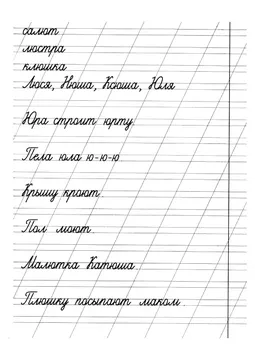 салют
люстра
клюшка
Люся, Нюша, Ксюша, Юля
Юра строит юрту.
Пела юла ю-ю-ю
Крышу кроют.
Пол моют.
Малютка Катюша.
Плюшку посыпают маком.